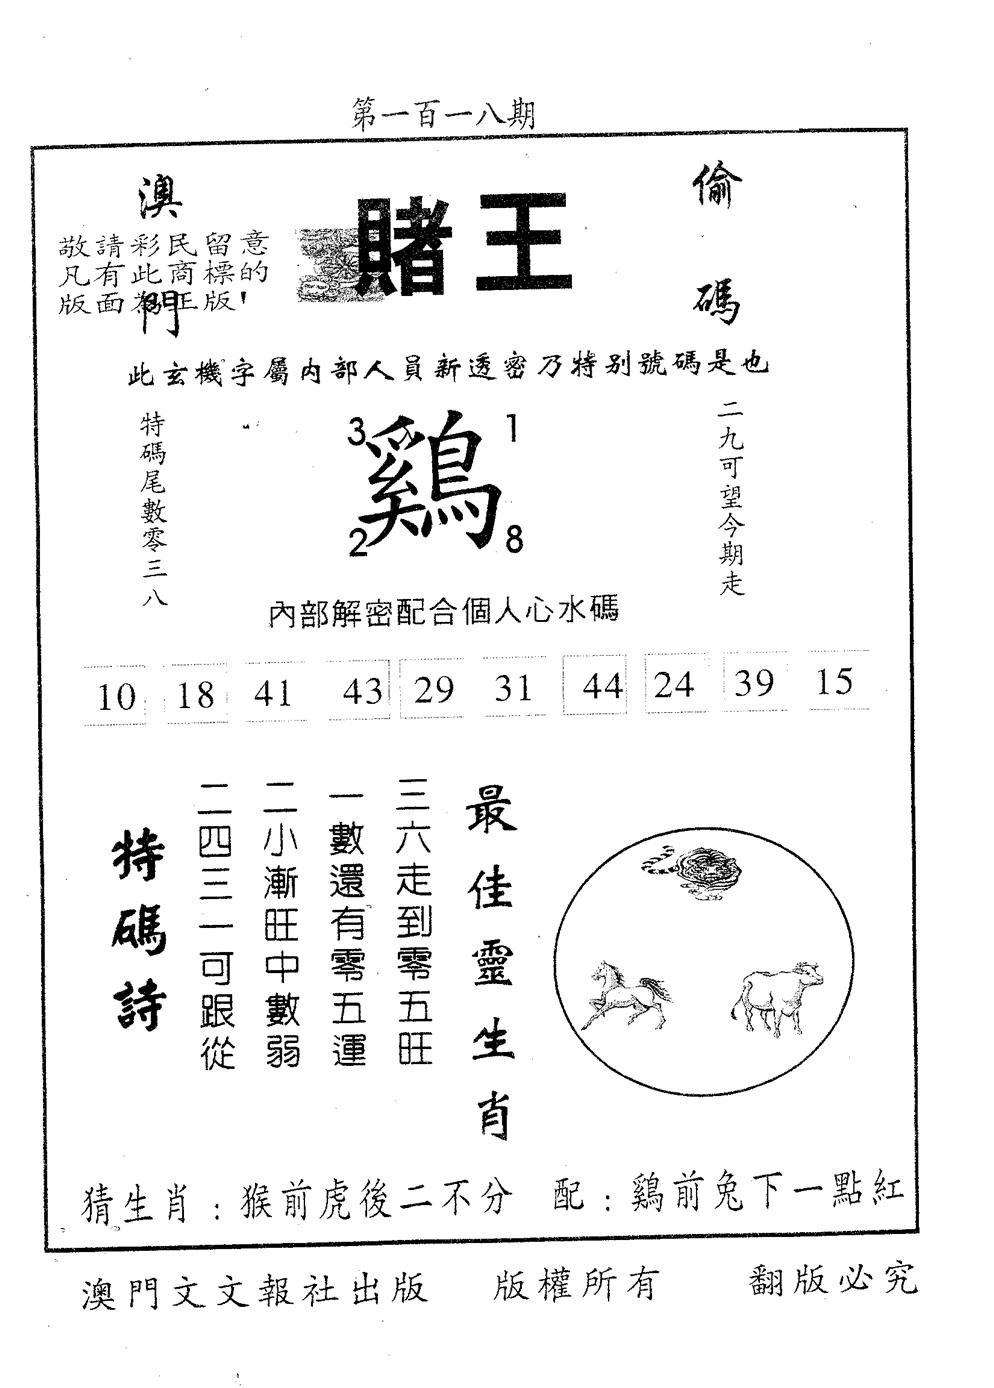 第一百一八期
澳門
賭王
偷碼
敬請彩民留意
凡有此商標的
版面為正版!
此玄機字屬内部人員新透密乃特别號碼是也
特碼尾數零三八
3
1
鷄
2
8
二九可望今期走
內部解密配合個人心水碼
10 18 41 43 29 31 44 24 39 15
最佳靈生肖
三六走到零五旺
一數還有零五運
二小漸旺中數弱
二四三一可跟從
特碼詩
猜生肖：猴前虎後二不分 配：鷄前兔下一點紅
澳門文文報社出版 版權所有 翻版必究